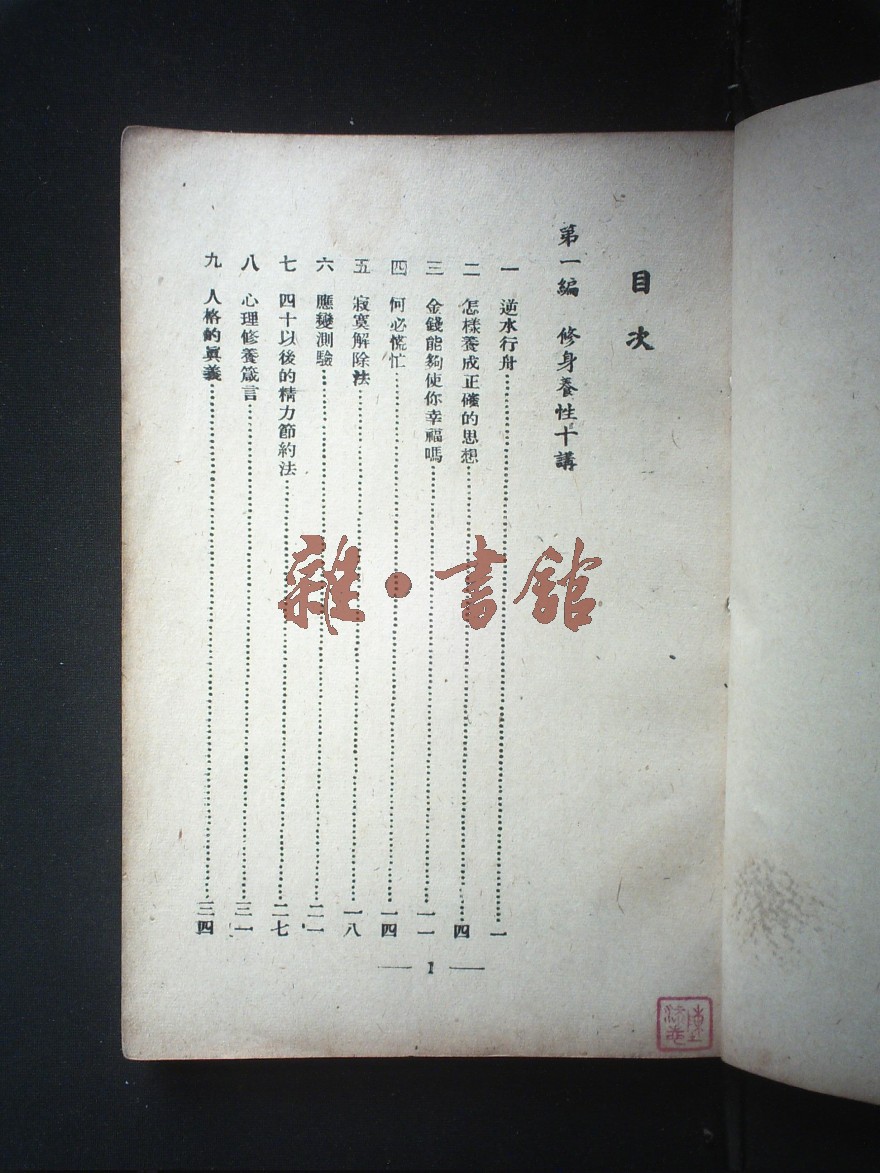 目次
第一編 修身養性十講
一 逆水行舟…………一
二 怎樣養成正確的思想…………四
三 金錢能夠使你幸福嗎…………一一
四 何必慌忙…………一四
五 寂寞解除法…………一八
六 應變測驗…………二一
七 四十以後的精力節約法…………二七
八 心理修養箴言…………三一
九 人格的眞義…………三四
— 1 —
雜·書館